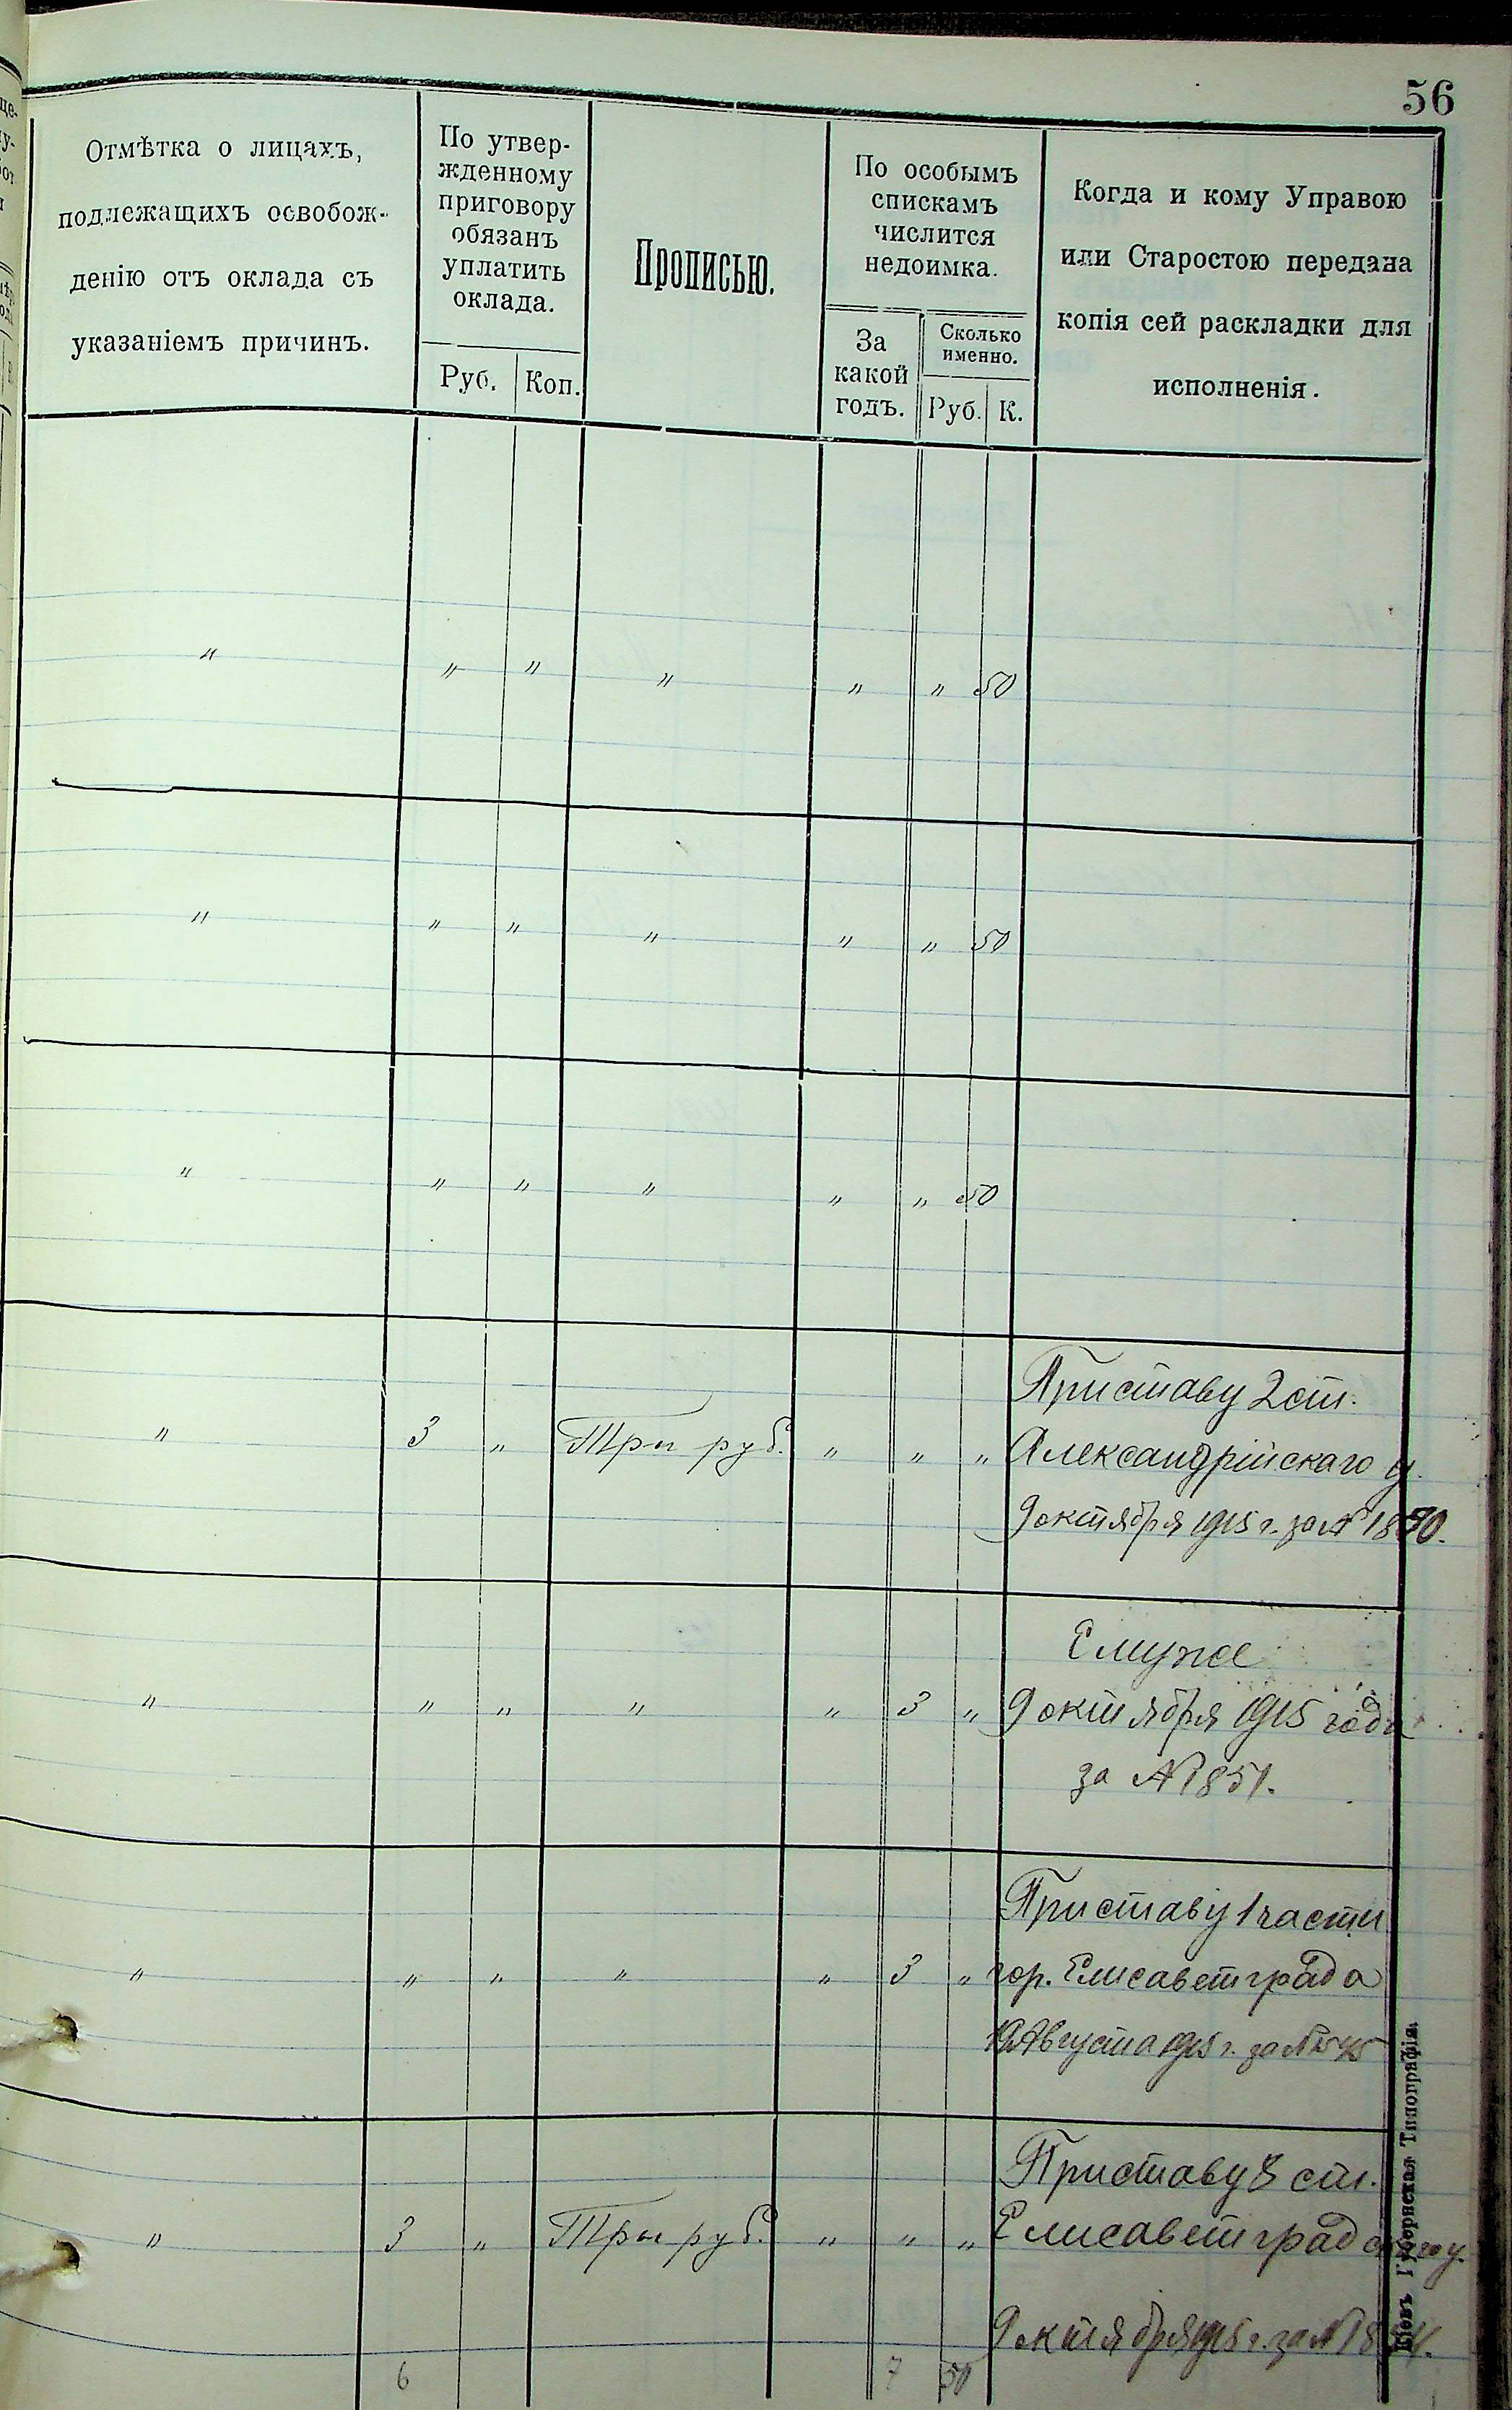 56
Отмѣтка о лицахъ,
подлежащихъ освобож-
денію отъ оклада съ
указаніемъ причинъ.
По утвер-
жденному
приговору
обязанъ
уплатить
оклада.
Руб. Коп.
Прописью.
По особымъ
спискамъ
числится
недоимка.
За
какой
годъ.
Сколько
именно.
Руб. К.
Когда и кому Управою
или Старостою передана
копія сей раскладки для
исполненія.
" " " " " " 50
" " " " " " 50
" " " " " " 50
Приставу 2 ст.
" 3 " Три руб. " " " Александрійскаго у.
9 октября 1915 г. за № 1850.
Ему же
" " " " " 3 " 9 октября 1915 года
за № 1851.
Приставу 1 части
" " " " " 3 " гор. Елисаветграда
Августа 1915 г. за №
Приставу 3 ст.
" 3 " Три руб. " " " Елисаветградскаго у.
9 октября 1915 г. за №
6 7 50
Кіевъ Губернская Типографія.